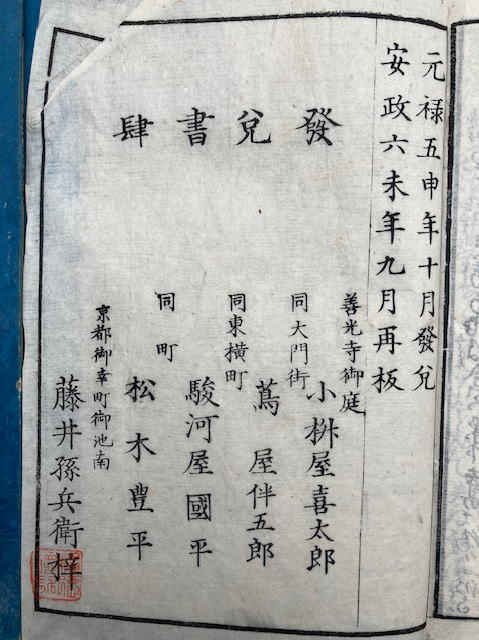 元禄五申年十月發兌
安政六未年九月再板
發兌書肆
善光寺御庭
小桝屋喜太郎
同大門街
蔦屋伴五郎
同東横町
駿河屋國平
同町
松木豊平
京都御幸町御池南
藤井孫兵衛梓